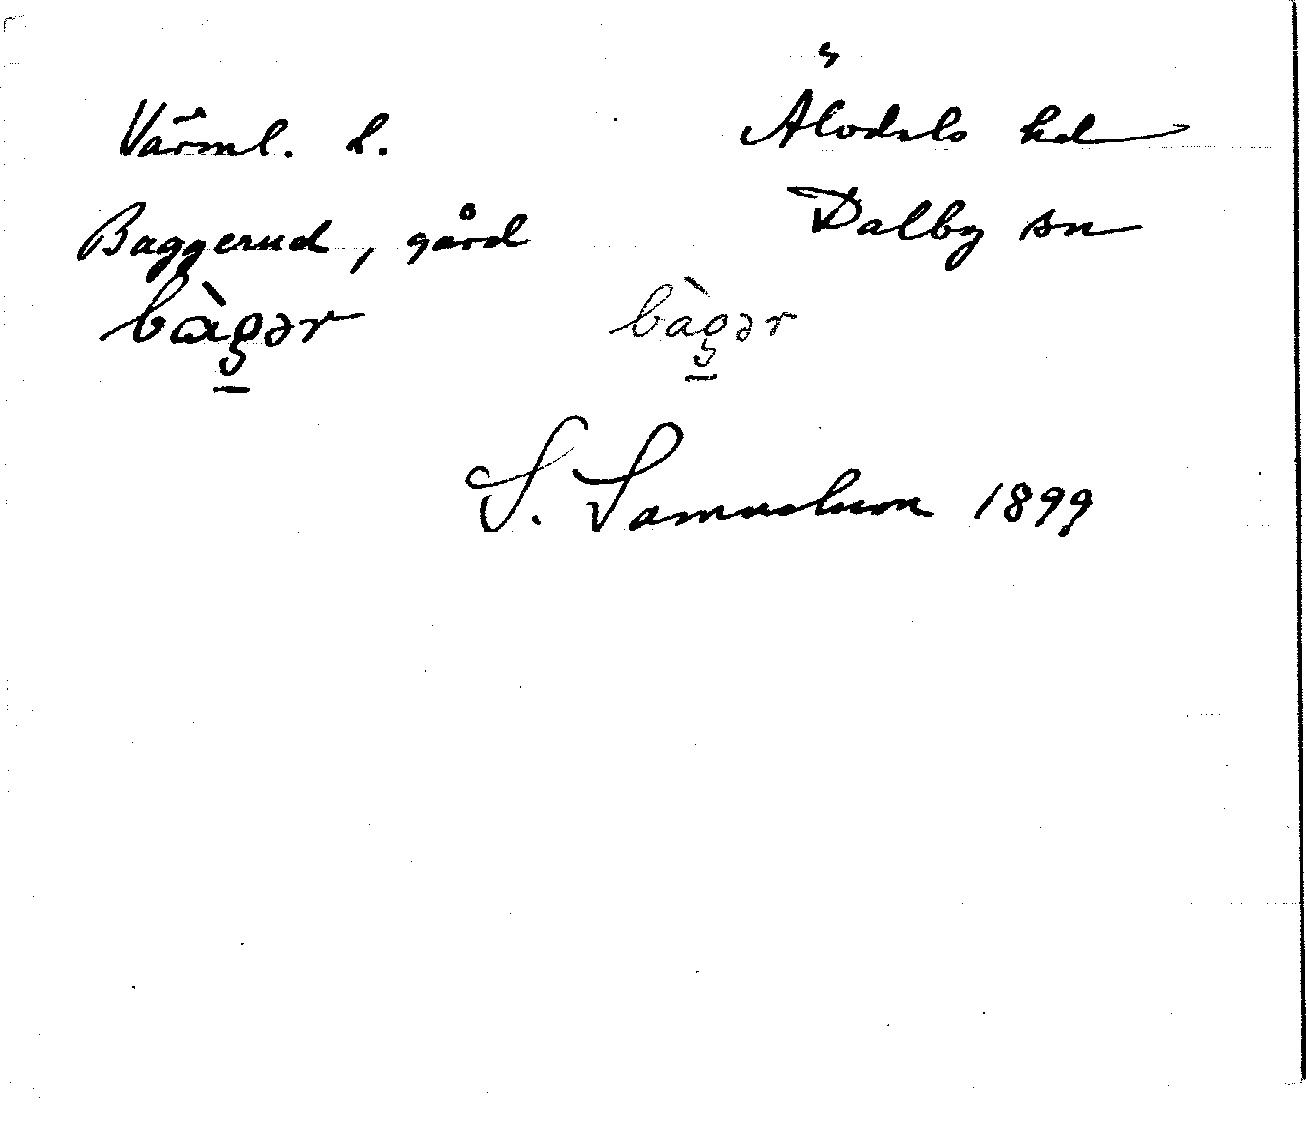 Värml. L. Älvdals hd
Baggerud, gård Dalby sn
bàgər bàgər
S. Samuelsson 1899